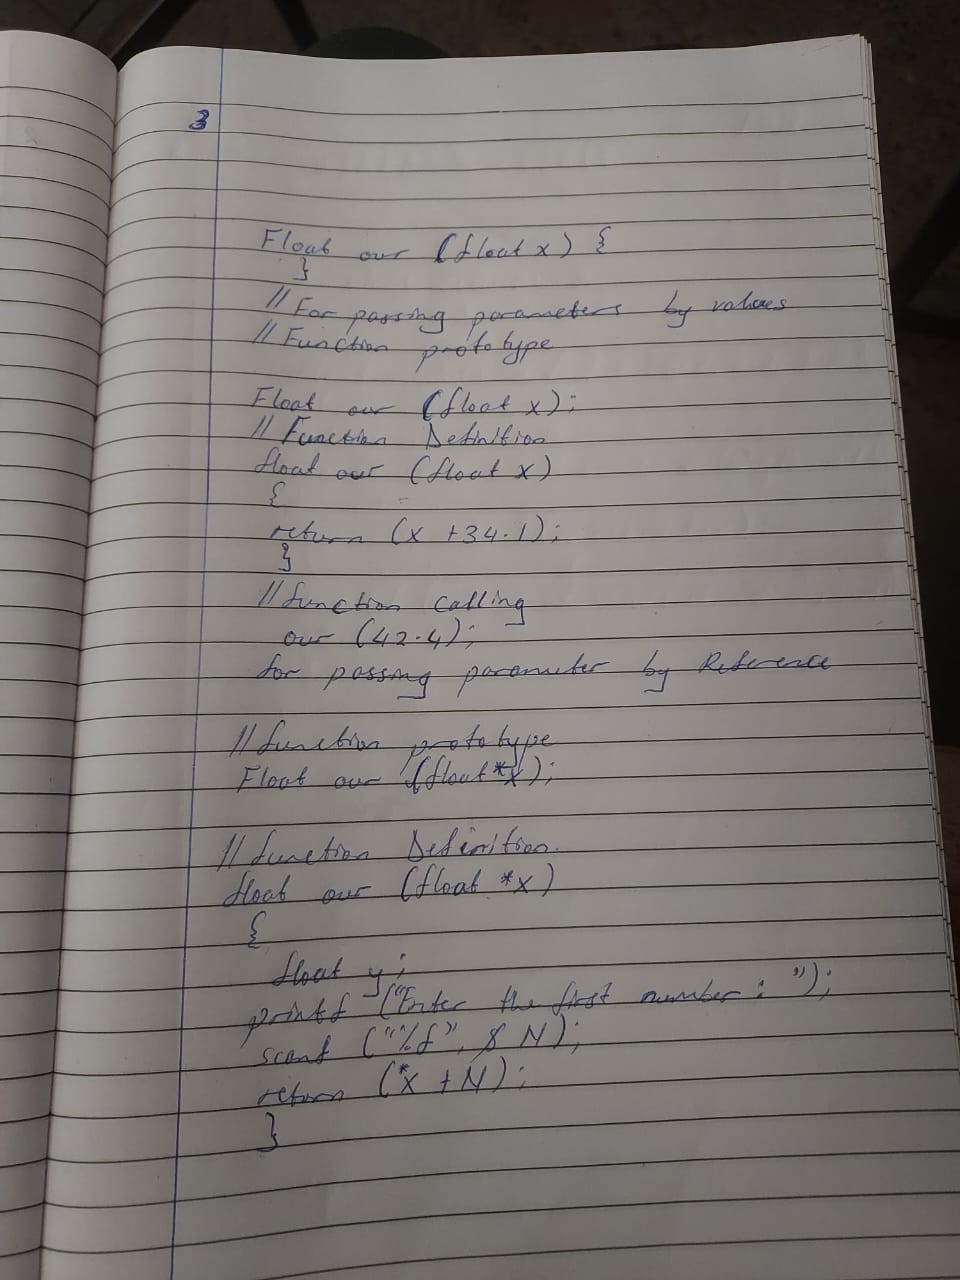 3
Float our (float x) {
}
// For passing parameters by values
// Function prototype
Float our (float x);
// Function Definition
float our (float x)
{
return (x +34.1);
}
// function calling
our (42.4);
for passing parameter by Reference
// function prototype
Float our (float *x);
// function Definition.
float our (float *x)
{
float y;
printf ("Enter the first number: ");
scanf ("%f", & N);
return (*x + N);
}